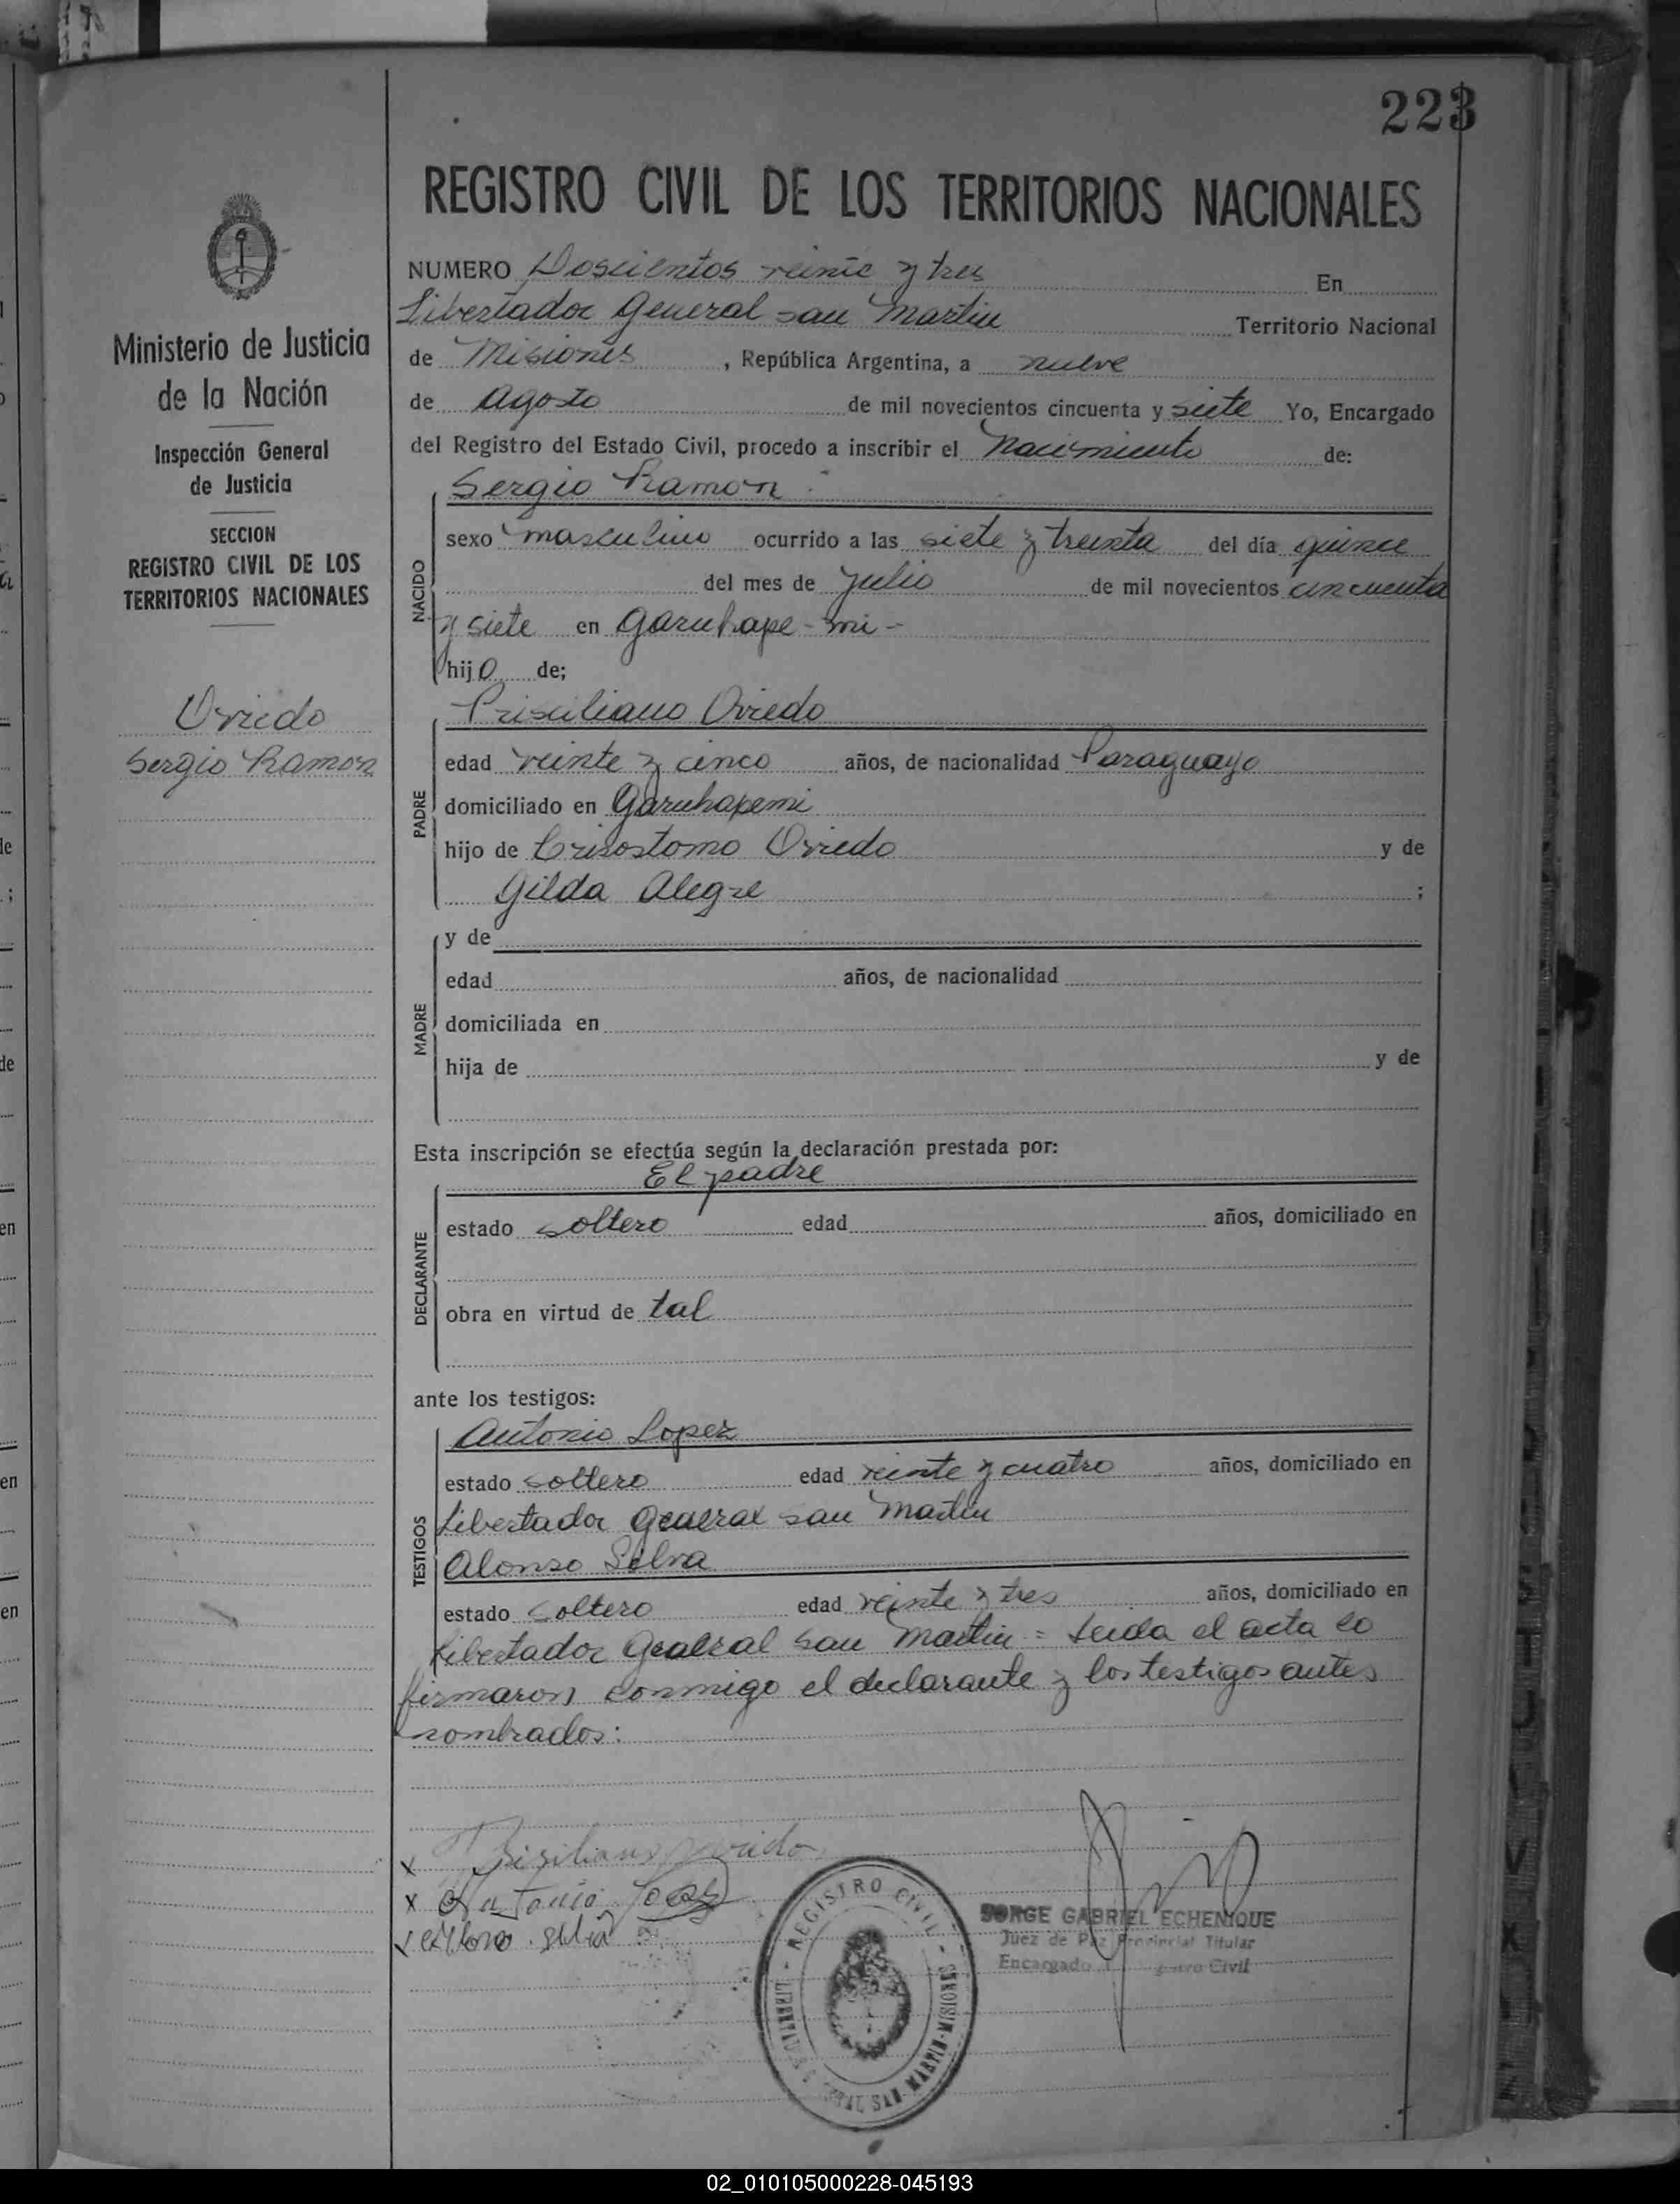 223
REGISTRO CIVIL DE LOS TERRITORIOS NACIONALES
Ministerio de Justicia
de la Nación
Inspección General
de Justicia
SECCION
REGISTRO CIVIL DE LOS
TERRITORIOS NACIONALES
Oviedo
Sergio Ramon
NUMERO Doscientos veinte y tres En
Libertador General san Martin Territorio Nacional
de Misiones, República Argentina, a nueve
de Agosto de mil novecientos cincuenta y siete Yo, Encargado
del Registro del Estado Civil, procedo a inscribir el Nacimiento de:
NACIDO
Sergio Ramon
sexo masculino ocurrido a las siete y treinta del día quince
del mes de Julio de mil novecientos cincuenta
y siete en Garuhape-mi-
hijo de;
PADRE
Prisciliano Oviedo
edad veinte y cinco años, de nacionalidad Paraguayo
domiciliado en Garuhapemi
hijo de Crisostomo Oviedo y de
Gilda Alegre ;
MADRE
y de
edad años, de nacionalidad
domiciliada en
hija de y de
Esta inscripción se efectúa según la declaración prestada por:
DECLARANTE
El padre
estado soltero edad años, domiciliado en
obra en virtud de tal
ante los testigos:
TESTIGOS
Antonio Lopez
estado soltero edad veinte y cuatro años, domiciliado en
Libertador General san Martin
Alonso Silva
estado soltero edad veinte y tres años, domiciliado en
Libertador General San Martin = Leida el acta lo
firmaron conmigo el declarante y los testigos antes
nombrados:
x Prisiliano Oviedo
x Antonio Lopez
JORGE GABRIEL ECHENIQUE
Juez de Paz Provincial Titular
Encargado Civil
REGISTRO CIVIL
SAN MARTIN-MISIONES
02_010105000228-045193